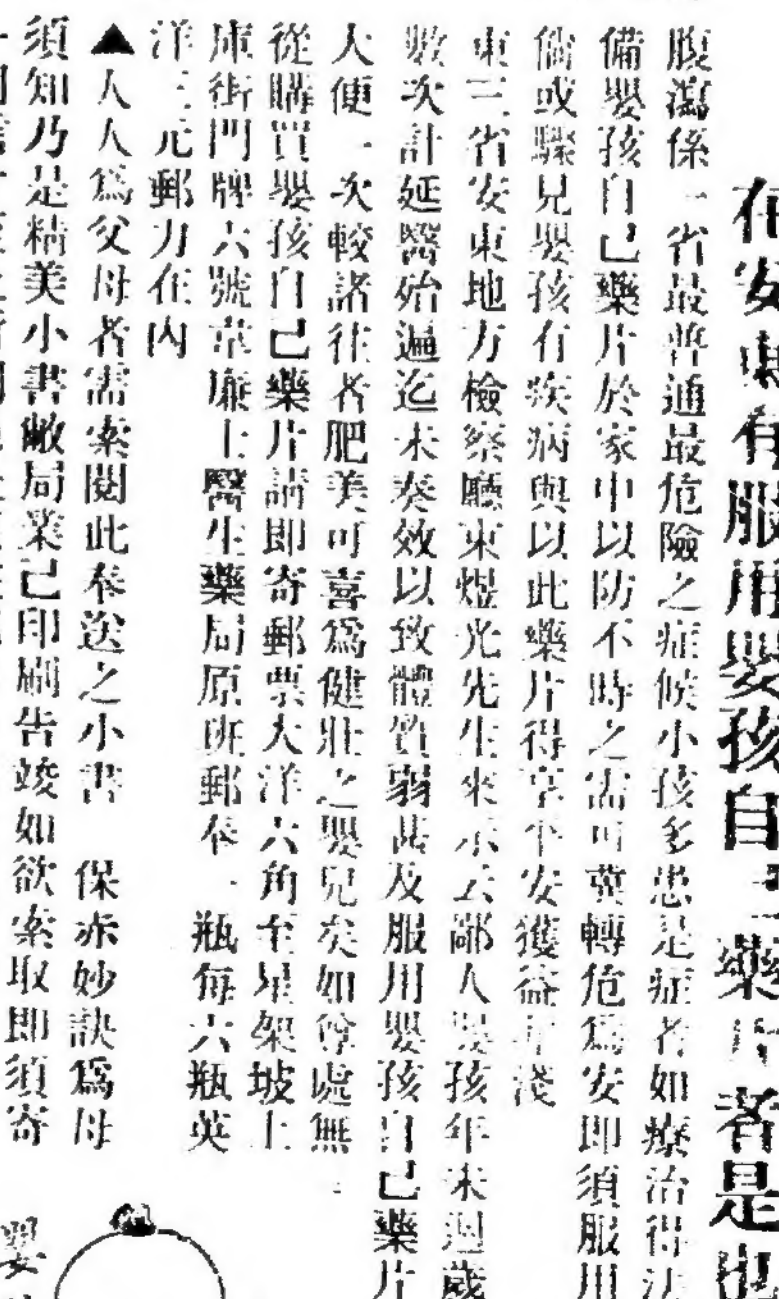 在安東有服用嬰孩自己藥片者是也
腹瀉係一省最普通最危險之症候小孩多患是症者如療治得法
備嬰孩自己藥片於家中以防不時之需可冀轉危為安即須服用
倘或驟兒嬰孩有疾病與以此藥片得享平安獲益匪淺
東三省安東地方檢察廳東煜光先生來示云鄙人嬰孩年未週歲
數次計延醫殆遍迄未奏效以致體質弱甚及服用嬰孩自己藥片
大便一次較諸往者肥美可喜為健壯之嬰兒矣如尊處無
從購買嬰孩自己藥片請即寄郵票大洋六角至星架坡上
庫街門牌六號韋廉士醫生藥局原班郵奉一瓶每六瓶英
洋三元郵力在內
▲人人為父母者需索閱此奉送之小書 保赤妙訣為母
須知乃是精美小書敝局業已印刷告竣如欲索取即須寄
嬰